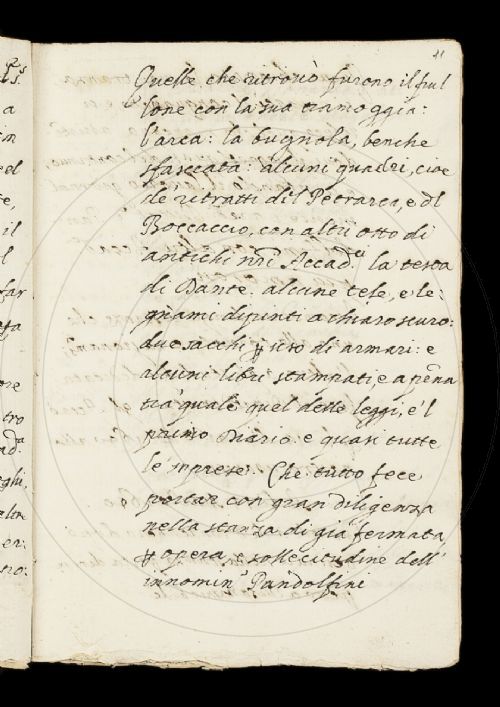 11
Quelle che ritrovò furono il frul
lone con la sua tramoggia:
l'arca: la bugnola, benche
sfasciata: alcuni quadri, cioè
de' ritratti del Petrarca, e dl
Boccaccio, con altri otto di
antichi nrĩ Accadci la testa
di Dante. alcune tele, e le=
gnami dipinti a chiaro scuro:
due sacchi di armari: e
alcuni libri stampati, e a penna
tra' quale quel delle leggi, e 'l
primo Diario: e quasi tutte
le 'mprese. Che tutto fece
portar con gran diligenza
nella stanza di già fermata
opera, e sollecitudine dell'
innomin.o Pandolfini